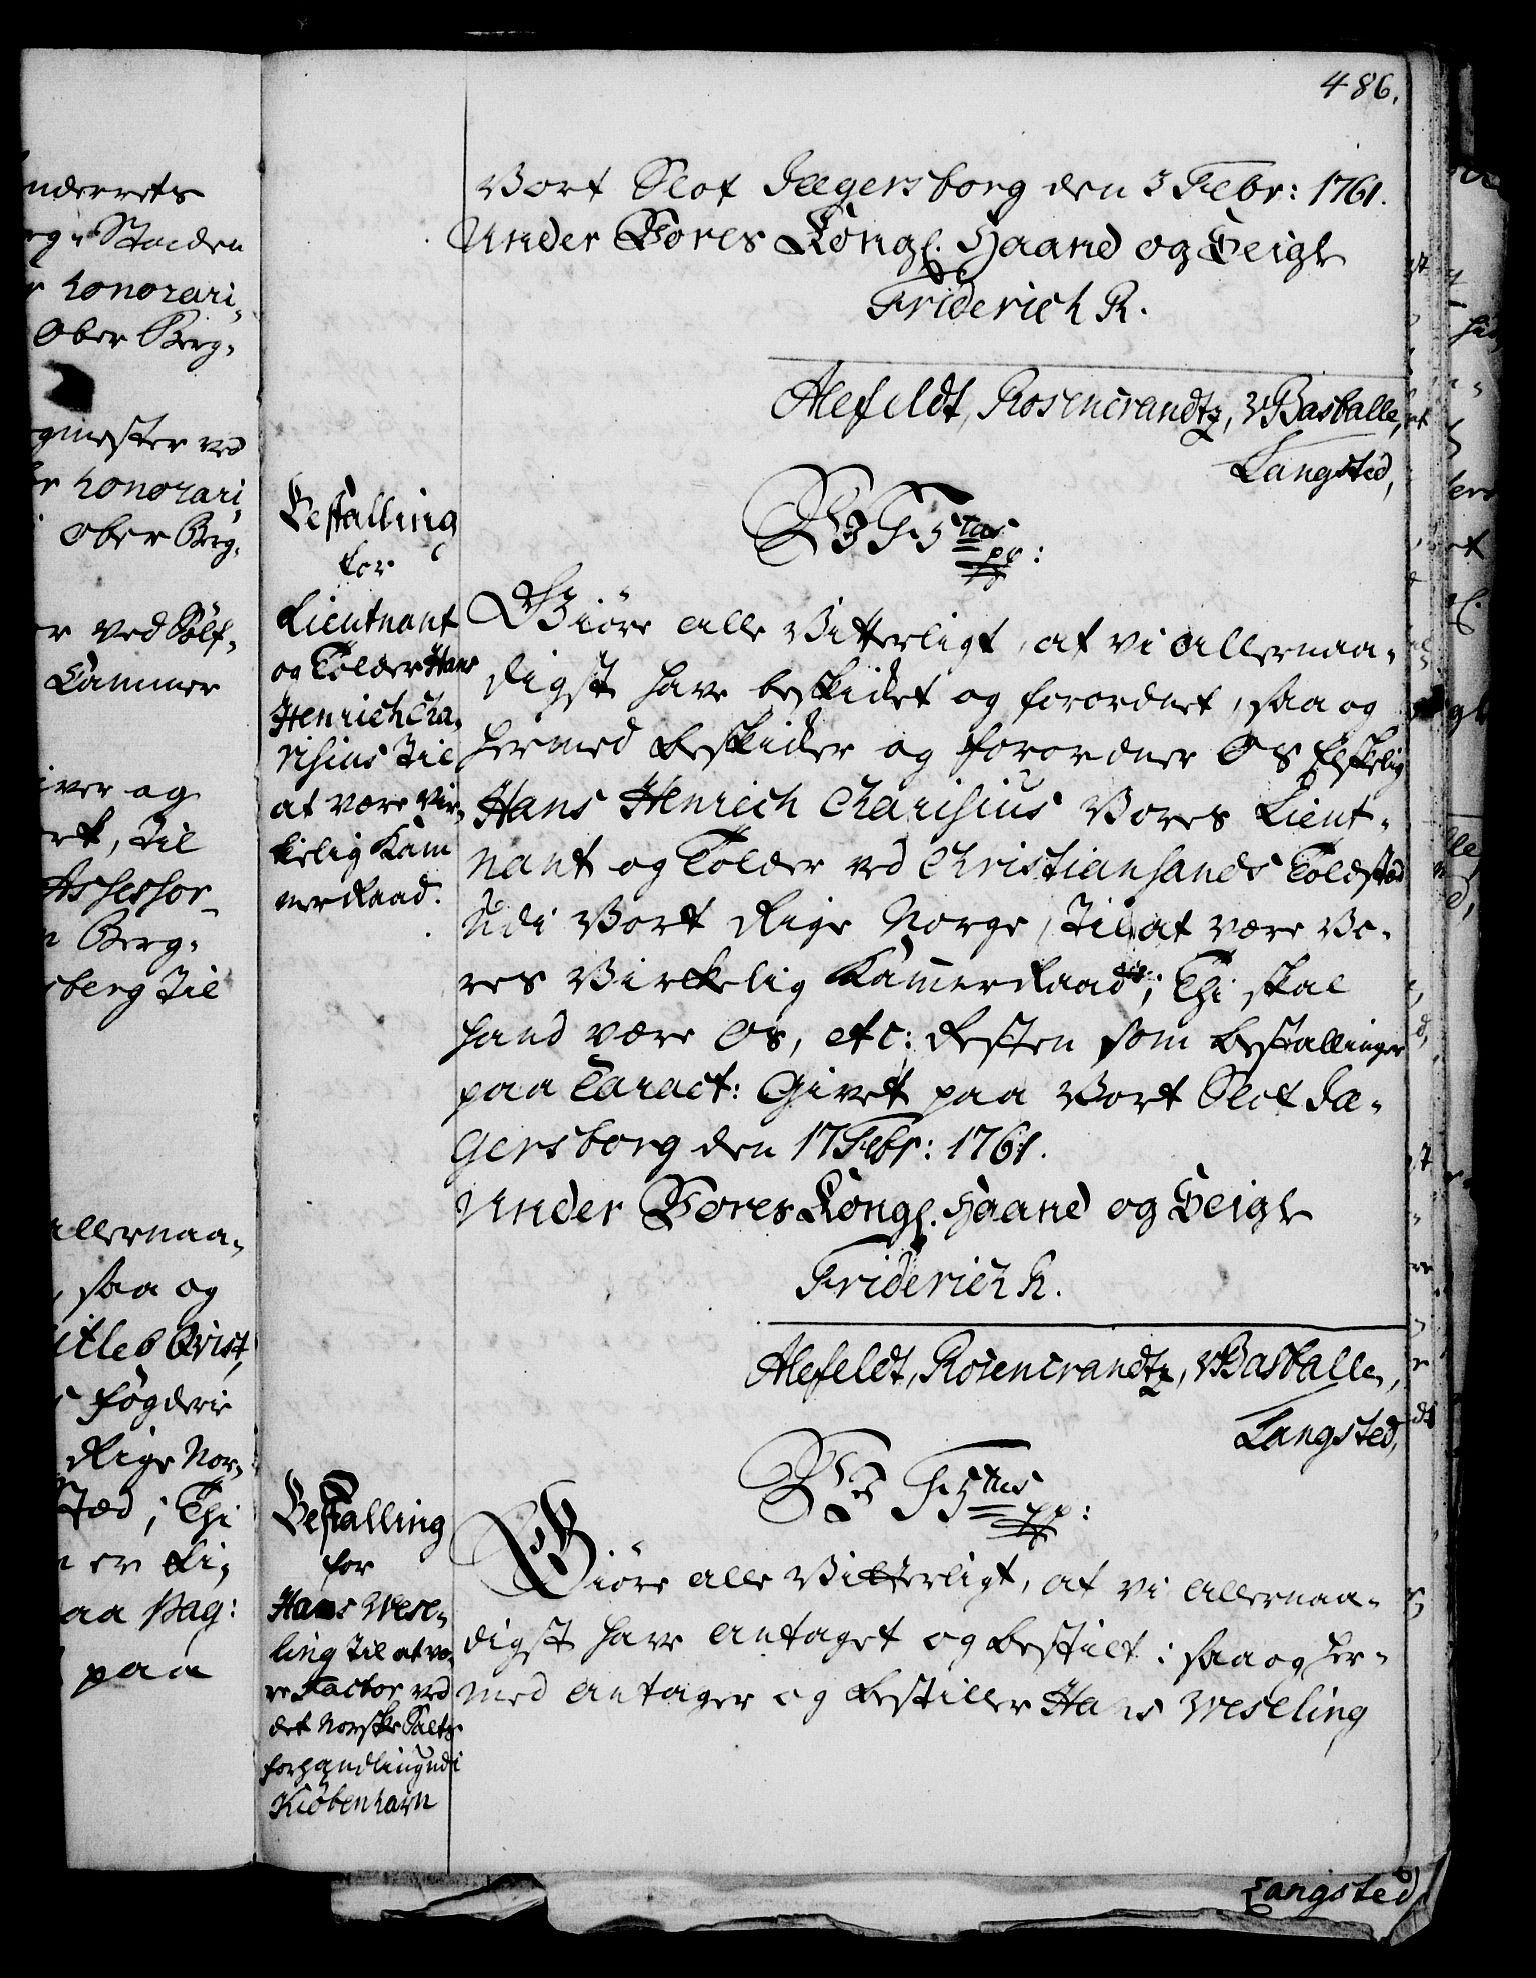 486.
Vort Slot Jægersborg den 3 Febr: 1761.
Under Vores Kongl. Haand og Seigl
Friderich R.
Alefeldt, Rosencrandtz, v Basballe,
Langsted,
Bestalling
for
Lieutnant
og Tolder Hans
Henrich Cha-
risius til
at være Vir-
kelig Kam
merRaad.
VJ F 5tus
pp:
Giöre alle Vitterligt, at vi allernaa-
digst have beskicket og forordnet, saa og
hermed beskicker og forordner Os Elskelig
Hans Henrich Charisius Vores Lieut-
nant og Tolder ved Christiansands Toldsted
Udi Vort Rige Norge, til at være Vo-
res Virkelig KammerRaad; Thi skal
hand være Os, etc: Resten som bestallinger
paa Caract: Givet paa Vort Slot Jæ-
gersborg den 17 Febr: 1761.
Under Vores Kongl. Haand og Seigl
Friderich R.
Alefeldt, Rosencrandtz, v Basballe,
Langsted,
Bestalling
for
Hans Wese-
ling til at væ-
re Factor ved
det Norske Salts
forhandling udi
Kiöbenhavn
VJ F 5tus
pp:
Giöre alle Vitterligt, at vi allernaa-
digst have antaget og bestilt; saa og her-
med antager og bestiller Hans Weseling
Langsted
nderrets
eg i Staden
r honorari-
Ober Berg-
gmester ved
er honorari-
Ober Berg-
er ved Sölf-
Cammer
iver og
ert, til
Assessor
Berg-
sberg til
allernaa-
, saa og
itleb Qvist,
fögderie
Rige Nor-
sted; Thi
er li-
aa pag:
paa